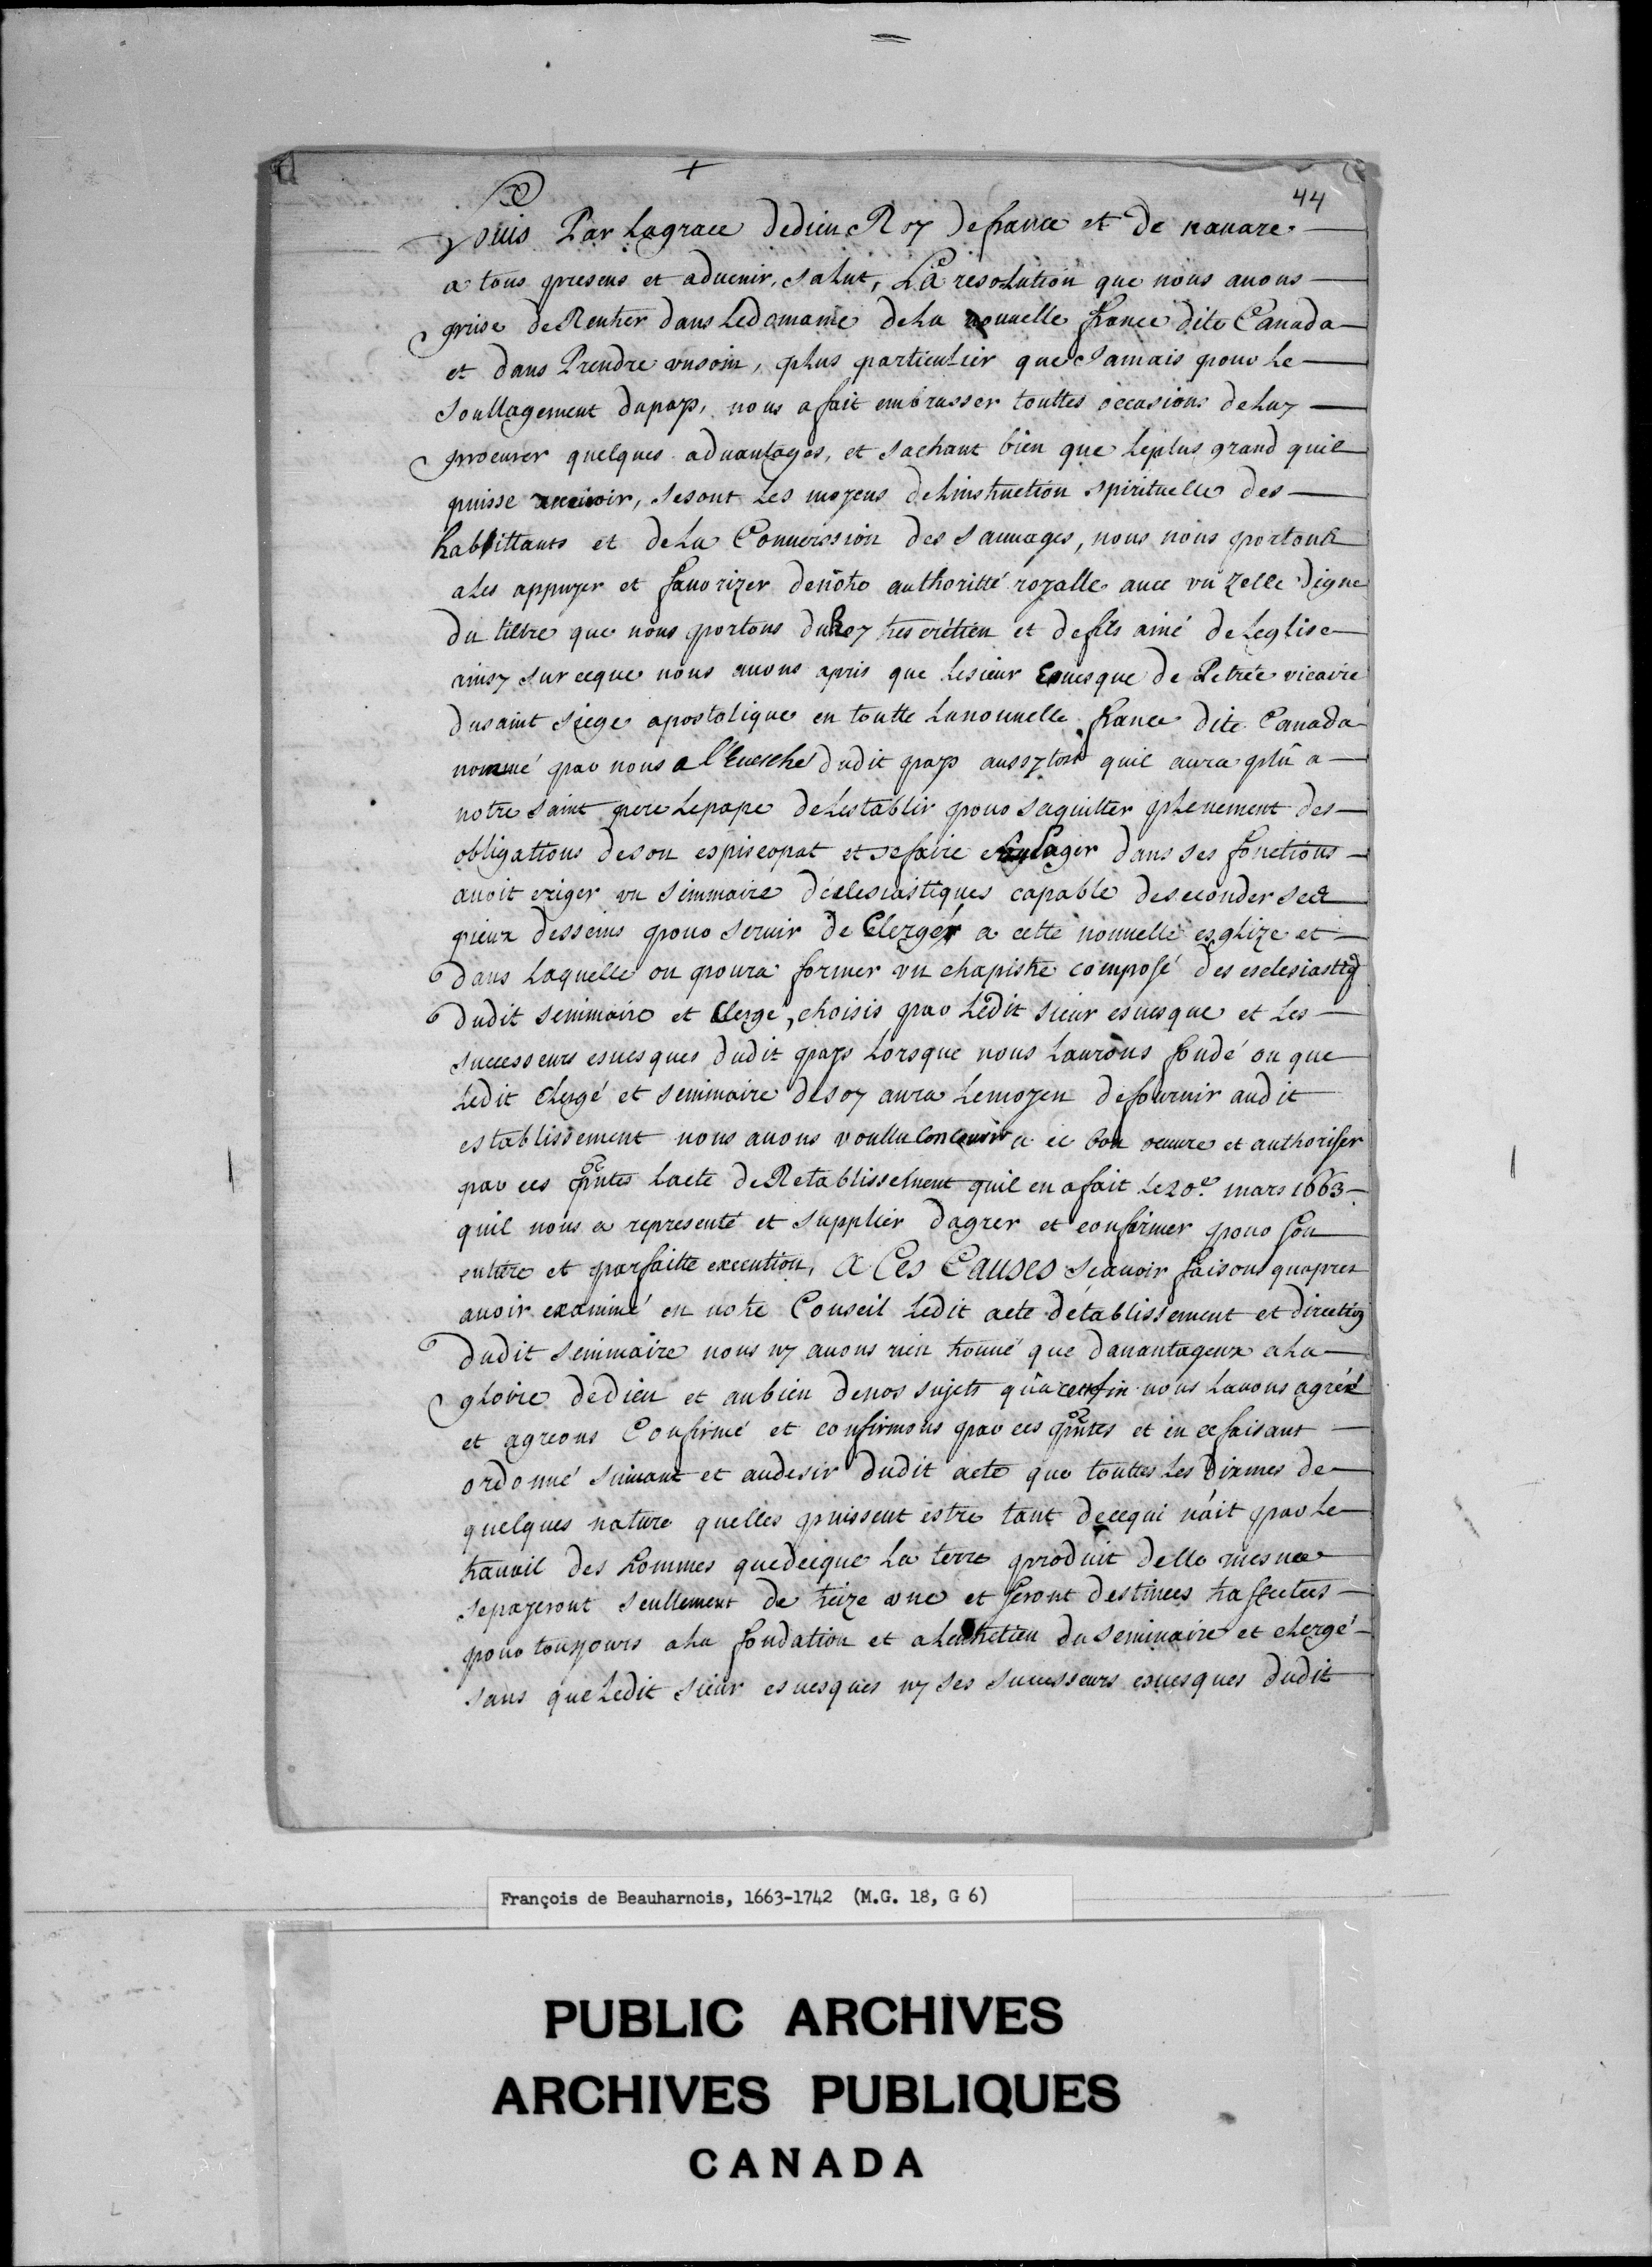 44
Louis Par Lagrace dedieu Roy defrance et de nauare
a tous presens et aduenir, salut, La resolution que nous auons
prise de Rentrer dans Ledomaine dela nouuelle france dite Canada
et dans Prendre vnsoin, plus particulier que Jamais pour le
soullagement dupays, nous afait embrasser touttes occasions deluy
procurer quelques aduantages, et sachant bien que leplus grand quil
puisse receuoir, sesont les moyens delinstruction spirituelle des
habittants et dela Conuerssion des sauuages, nous nous portons
ales appuyer et fauorizer denotre authoritté royalle auec vn zelle digne
du tiltre que nous portons du Roy tres crétien et defils ainé de Leglise
ainsy sur ceque nous auons apris que lesieur Euesque de Petrée vicaire
dusaint siege apostolique en toutte lanouuelle france dite Canada
nommé par nous a l'Euesché dudit pays aussytost quil aura plû a
notre saint pere lepape delestablir pour saquitter plenement des
obligations deson espiscopat et sefaire soulager dans ses fonctions
auoit eriger vn seminaire déclesiastiques capable deseconder ses
pieux desseins pour seruir de Clergér a cette nouuelle esglize et
dans laquelle on poura former vn chapistre composé des esclesiastiq
dudit seminaire et Clergé, choisis par Ledit sieur esuesque et les
successeurs esuesques dudit pays lorsque nous laurons fondé ou que
ledit clergé et seminaire desoy aura lemoyen defournir audit
establissement nous auons voullu Concourir a ce bon oeuure et authoriser
par ces pntes lacte deRetablissement quil en afait le 20e. mars 1663
quil nous a representé et supplier dagrer et confirmer pour son
entiere et parfaitte execution, A Ces Causes scauoir faisons quapres
auoir examiné en notre Conseil ledit acte détablissement et directio
dudit seminaire nous ny auons rien trouué que dauantageux ala
gloire dedieu et aubien denos sujets quacesfin nous lauons agréé
et agreons Confirmé et confirmons par ces pntes et en cefaisant
ordonné suiuant et audesir dudit acte que touttes les dixmes de
quelques nature quelles puissent estre tant decequi náit par le
trauail des hommes quedecque la terre produit delle mesme
sepayeront seullement de treize vne et seront destinees
pour tousjours ala fondation et alentretien du seminaire et clergé
sans que Ledit sieur esuesques ny ses successeurs esuesques dudit
François de Beauharnois, 1663-1742 (M.G. 18, G 6)
PUBLIC ARCHIVES
ARCHIVES PUBLIQUES
CANADA